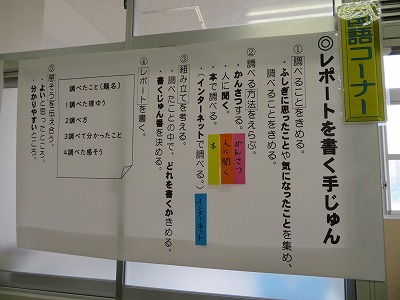 国語コーナー
◎レポートを書く手じゅん
①調べることをきめる。
・ふしぎに思ったことや気になったことを集め、
調べることをきめる。
②調べる方法をえらぶ。
・かんさつする。
・人に聞く。
・本で調べる。
・(インターネットで調べる。)
かんさつ
人に聞く
本
インターネット
③組み立てを考える。
・調べたことの中で、どれを書くかきめる。
・書くじゅん番を決める。
④レポートを書く。
調べたこと(題名)
1調べた理ゆう
2調べ方
3調べて分かったこと
4調べた感そう
⑤感そうを伝え合う。
・よいと思ったところ。
・分かりやすいところ。